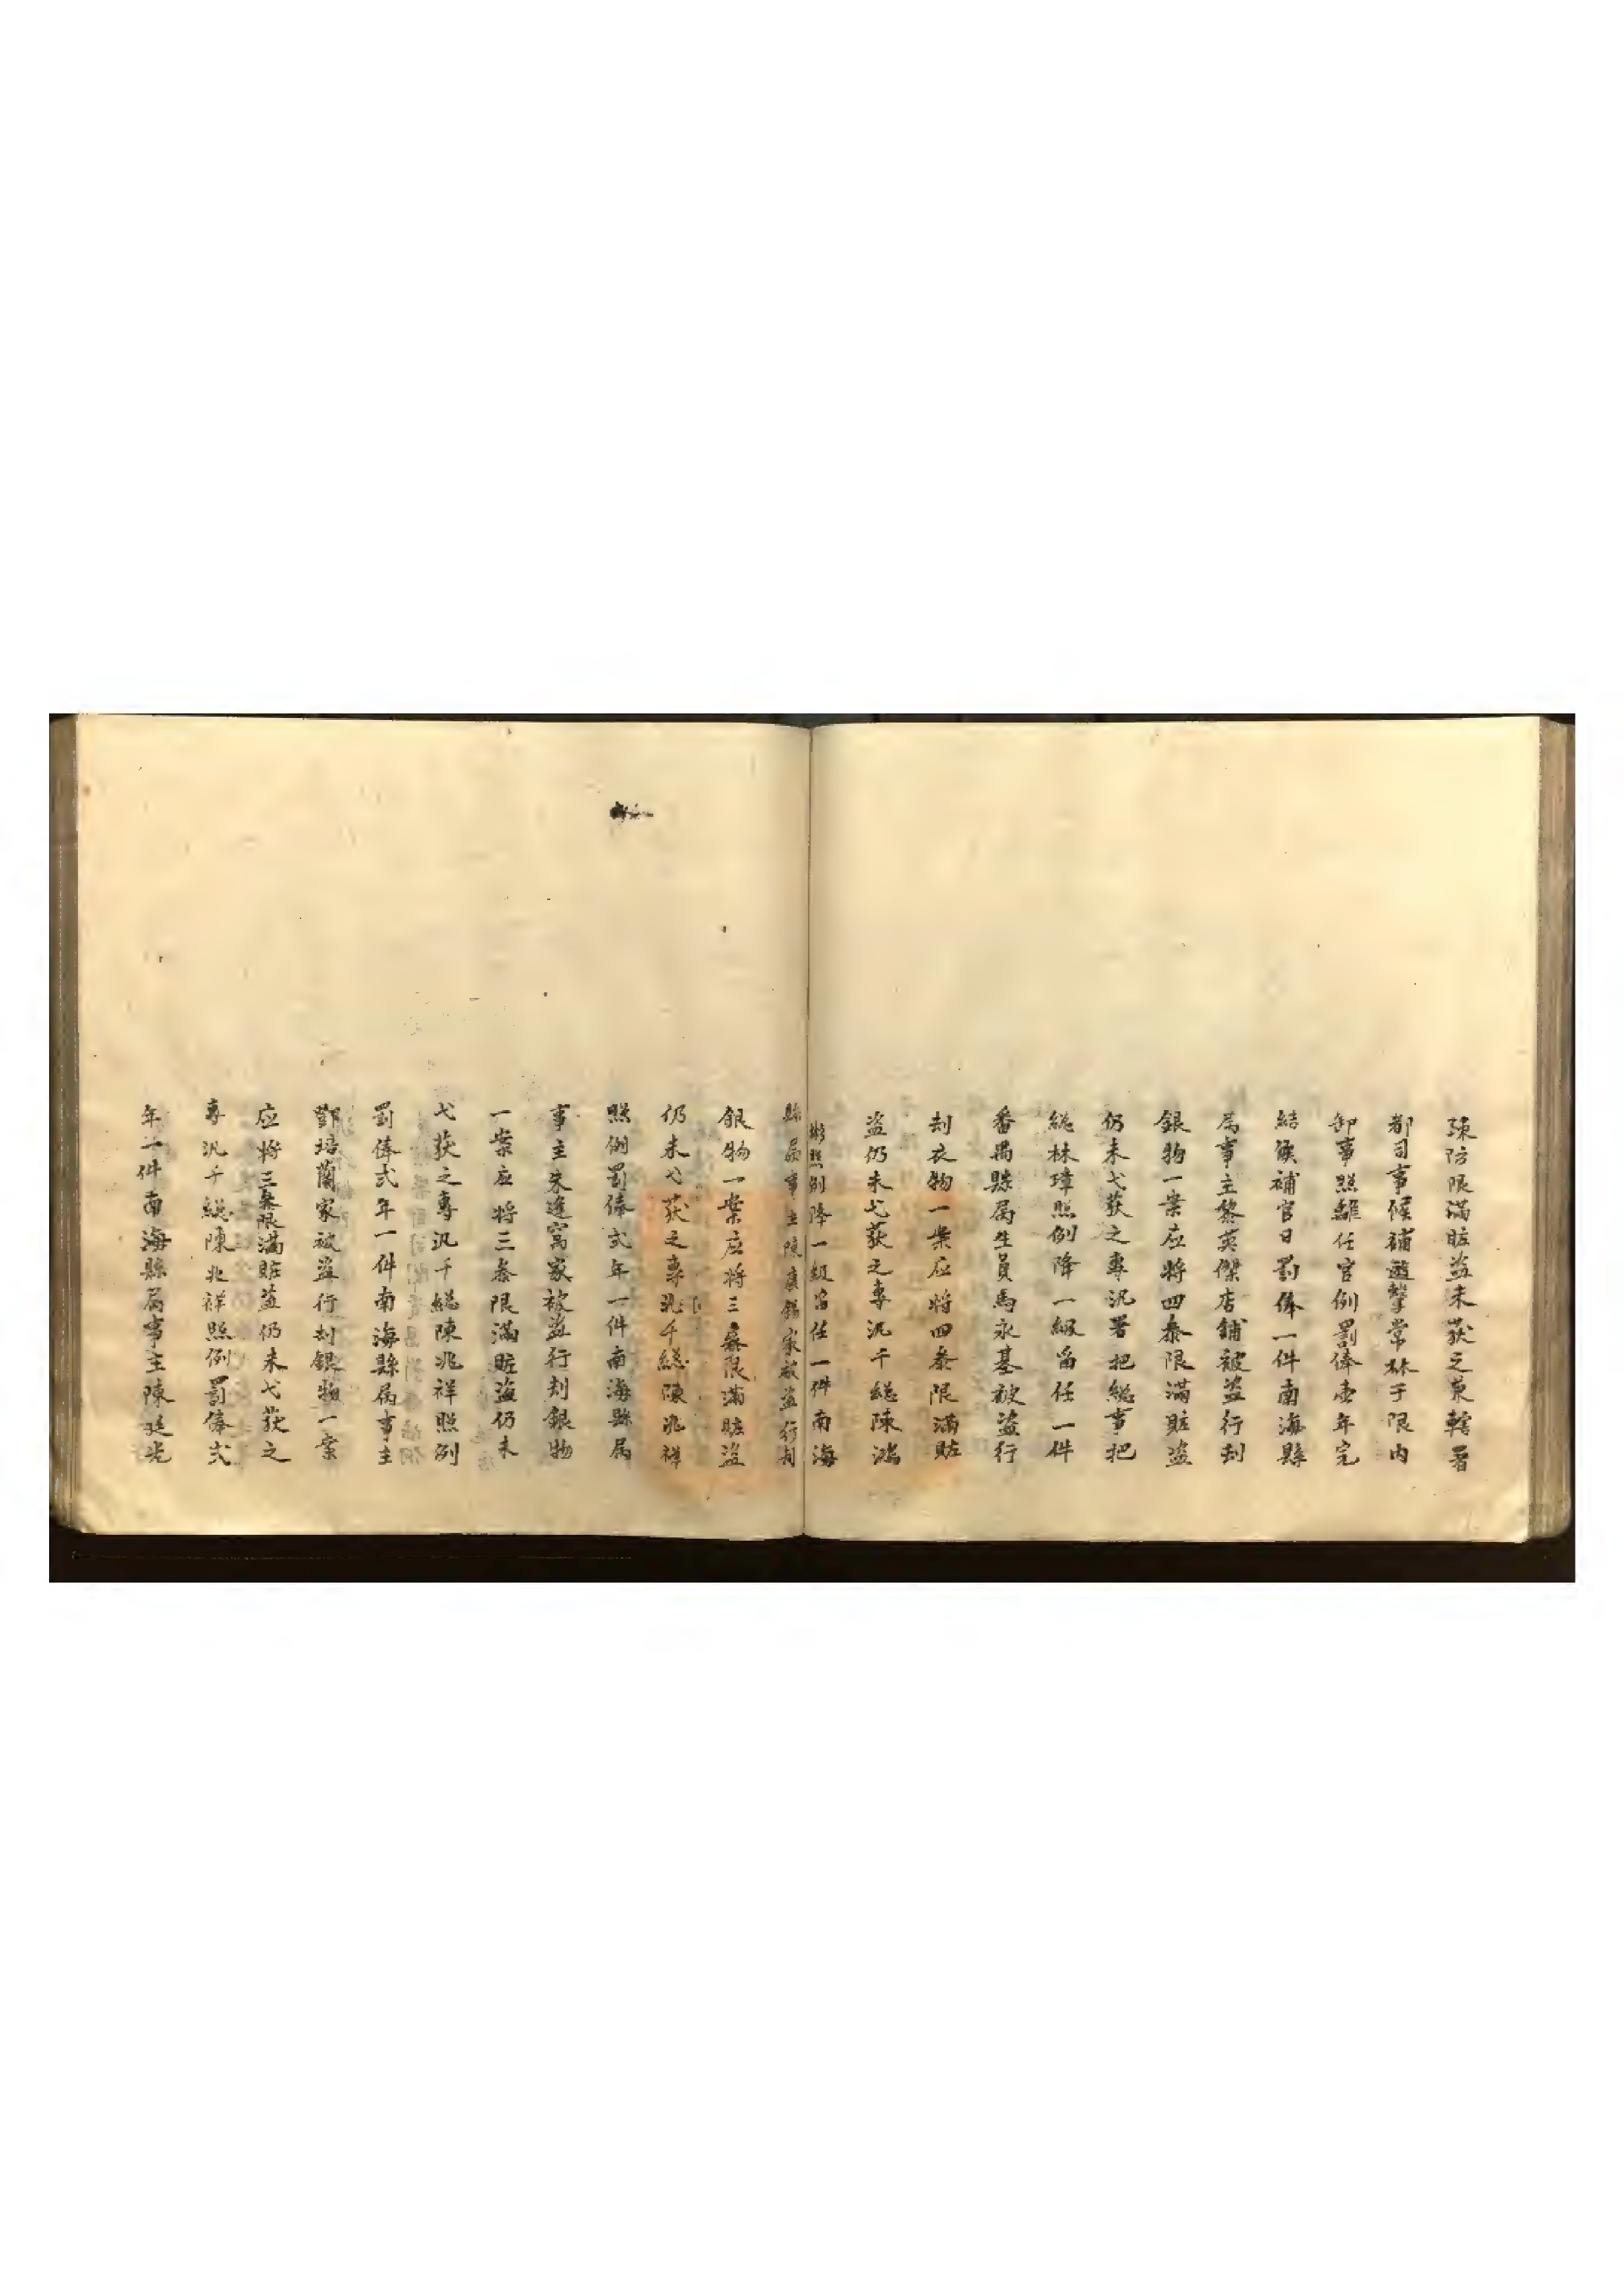 疎防限滿賍盜未获之兼轄署
都司事候補遊擊常林于限内
卸事照離任官例罰俸壱年完
結候補官日罰俸一件南海縣
属事主黎英傑店鋪被盜行刦
銀物一案应将四叅限滿賍盜
仍未弋获之專汛署把総事把
総林璋照例降一級畄任一件
番禺縣属生員馬永基被盜行
刦衣物一案应将四叅限滿賍
盜仍未弋获之專汛千総陳鴻
彬照例降一級畄任一件南海
縣属事主陳廣錫家被盜行刦
銀物一案应将三叅限滿賍盜
仍未弋获之專汛千総陳兆祥
照例罰俸弍年一件南海縣属
事主朱進窩家被盜行刦銀物
一案应将三叅限滿賍盜仍未
弋获之專汛千総陳兆祥照例
罰俸弍年一件南海縣属事主
鄧培蘭家被盜行刦銀物一案
应将三叅限滿賍盜仍未弋获之
專汛千総陳兆祥照例罰俸弍
年一件南海縣属事主陳廷光